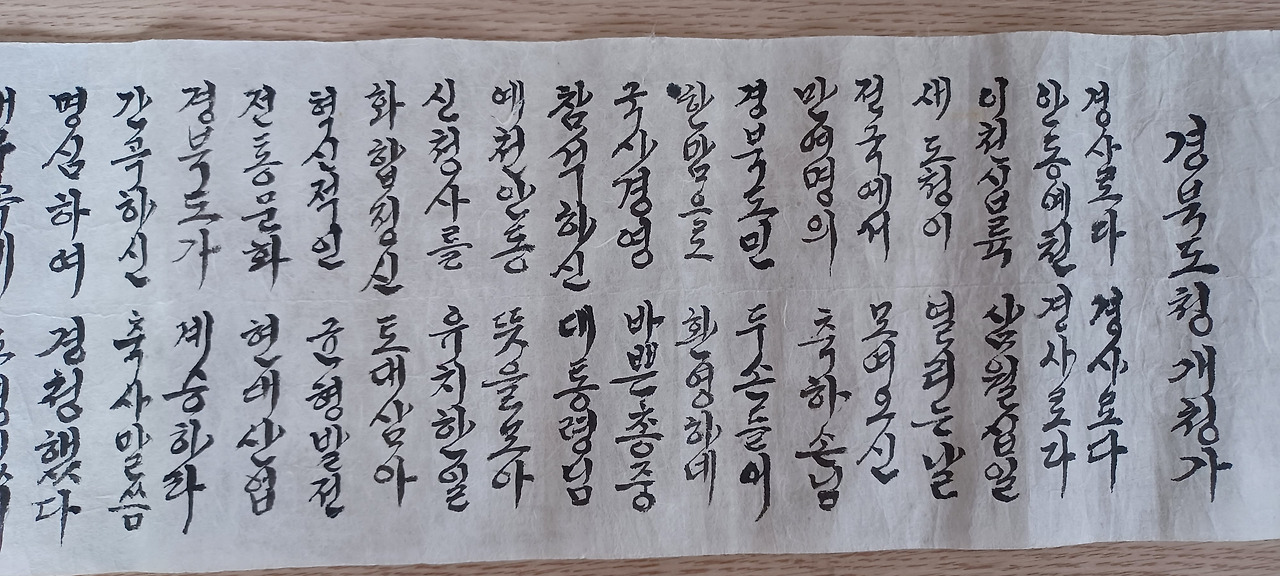 경북도청개청가
경사로다 경사로다
안동예천 경사로다
이천십륙 삼월십일
새도청이 열리는날
전국에서 모여오신
만여명의 축하손님
경북도민 두손들어
한맘으로 환영하네
국사경영 바쁜총중
참석하신 대통령님
예천안동 뜻을모아
신청사를 유치한일
화합정신 토대삼아
혁신적인 균형발전
전통문화 현대산업
경북도가 계승하라
간곡하신 축사말씀
명심하여 경청했다